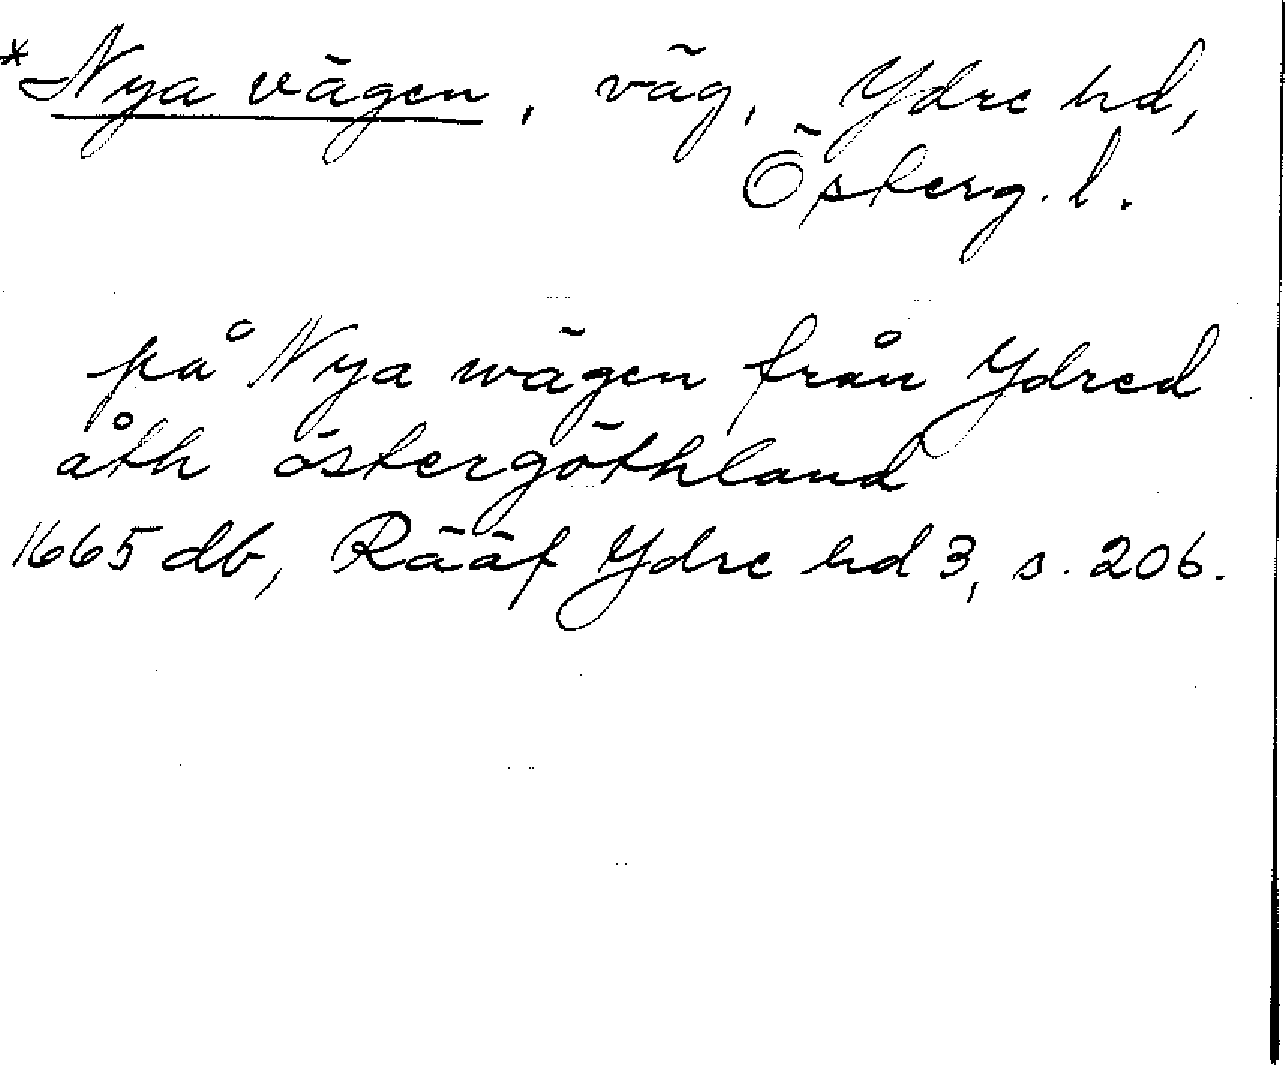 *Nya vägen, väg, Ydre hd,
Österg. l.
på Nya wägen från Ydred
åth östergöthland
1665 db, Rääf Ydre hd 3, s. 206.